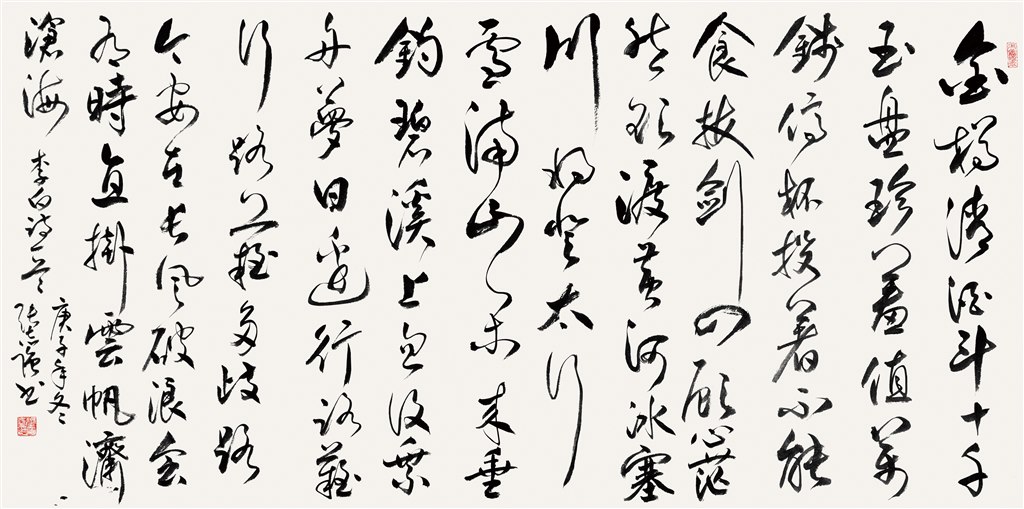 金樽清酒斗十千
玉盘珍羞值萬
錢停杯投箸不能
食拔劍四顧心茫
然欲渡黄河冰塞
川将登太行
雪满山闲来垂
釣碧溪上忽復乘
舟夢日邊行路難
行路難多歧路
今安在長風破浪会
有時直掛雲帆濟
滄海 李白诗一首
庚子年冬
张书